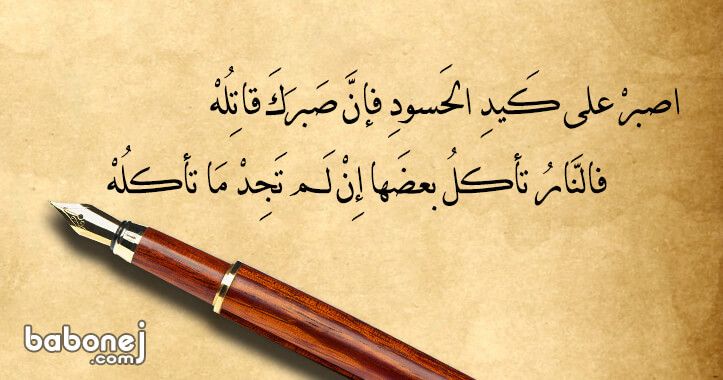 اصبرْ على كَيدِ الحَسودِ فإنَّ صَبرَكَ قاتِلُهْ
فالنَّارُ تأكلُ بعضَها إِنْ لَم تَجِدْ مَا تأكلُهْ
babonej
.com